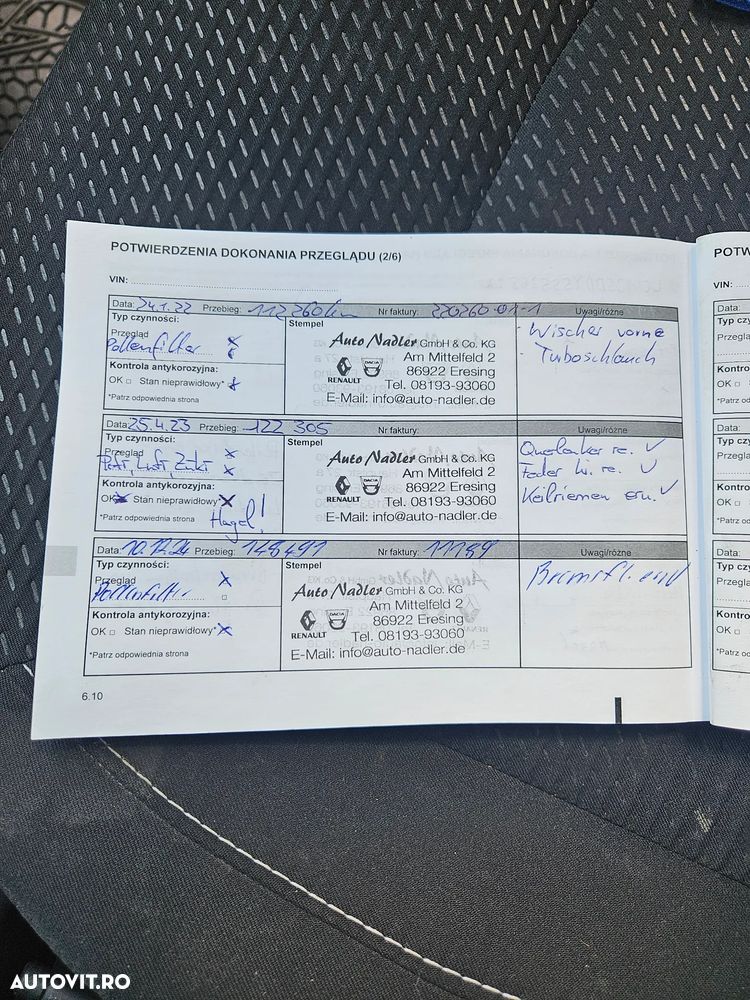 POTWIERDZENIA DOKONANIA PRZEGLĄDU (2/6)
VIN:
Data: 24.1.22 Przebieg: 112 260 km Nr faktury: 220260-01-1 Uwagi/różne
Typ czynności:
Przegląd x
Pollenfilter x
Kontrola antykorozyjna:
OK □ Stan nieprawidłowy* x
*Patrz odpowiednia strona
Stempel
Auto Nadler GmbH & Co. KG
Am Mittelfeld 2
86922 Eresing
Tel. 08193-93060
E-Mail: info@auto-nadler.de
RENAULT
DACIA
- Wischer vorne
- Turboschlauch
Data: 25.4.23 Przebieg: 122 305 Nr faktury: Uwagi/różne
Typ czynności:
Przegląd x
Luft, x
Kontrola antykorozyjna:
OK x Stan nieprawidłowy* x
*Patrz odpowiednia strona
Hagel!
Stempel
Auto Nadler GmbH & Co. KG
Am Mittelfeld 2
86922 Eresing
Tel. 08193-93060
E-Mail: info@auto-nadler.de
RENAULT
DACIA
Querlenker re. ✓
Feder hi. re. ✓
Keilriemen ern. ✓
Data: 10.12.24 Przebieg: 148491 Nr faktury: 11189 Uwagi/różne
Typ czynności:
Przegląd x
Pollenfilter □
Kontrola antykorozyjna:
OK □ Stan nieprawidłowy* x
*Patrz odpowiednia strona
Stempel
Auto Nadler GmbH & Co. KG
Am Mittelfeld 2
86922 Eresing
Tel. 08193-93060
E-Mail: info@auto-nadler.de
RENAULT
DACIA
Bremsfl. ern ✓
6.10
POTW
VIN:
Data:
Typ cz
Przeglą
Kontro
OK □
*Patrz o
Data:
Typ cz
Przeglą
Kontro
OK □
*Patrz
Data:
Typ cz
Przeg
Kont
OK □
*Patrz
AUTOVIT.RO